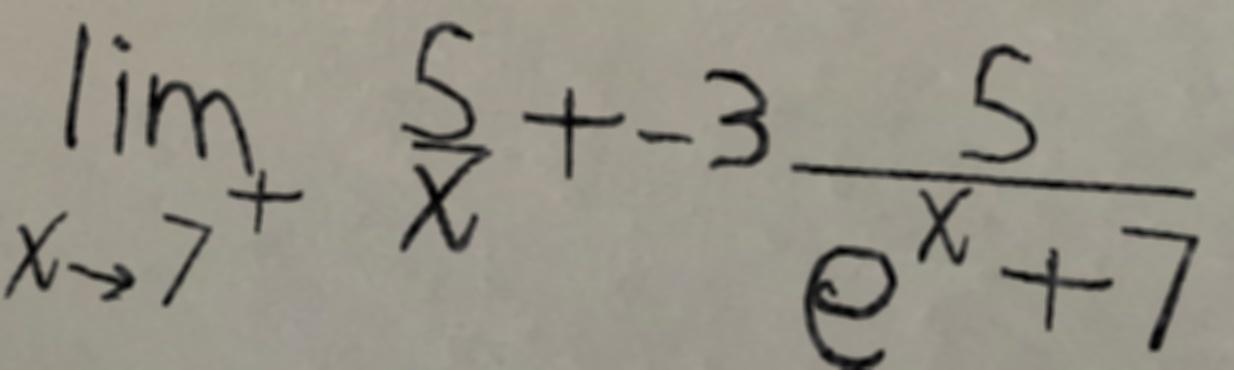 \lim_{x \to 7^+} \frac{5}{x} + -3 \frac{5}{e^x + 7}